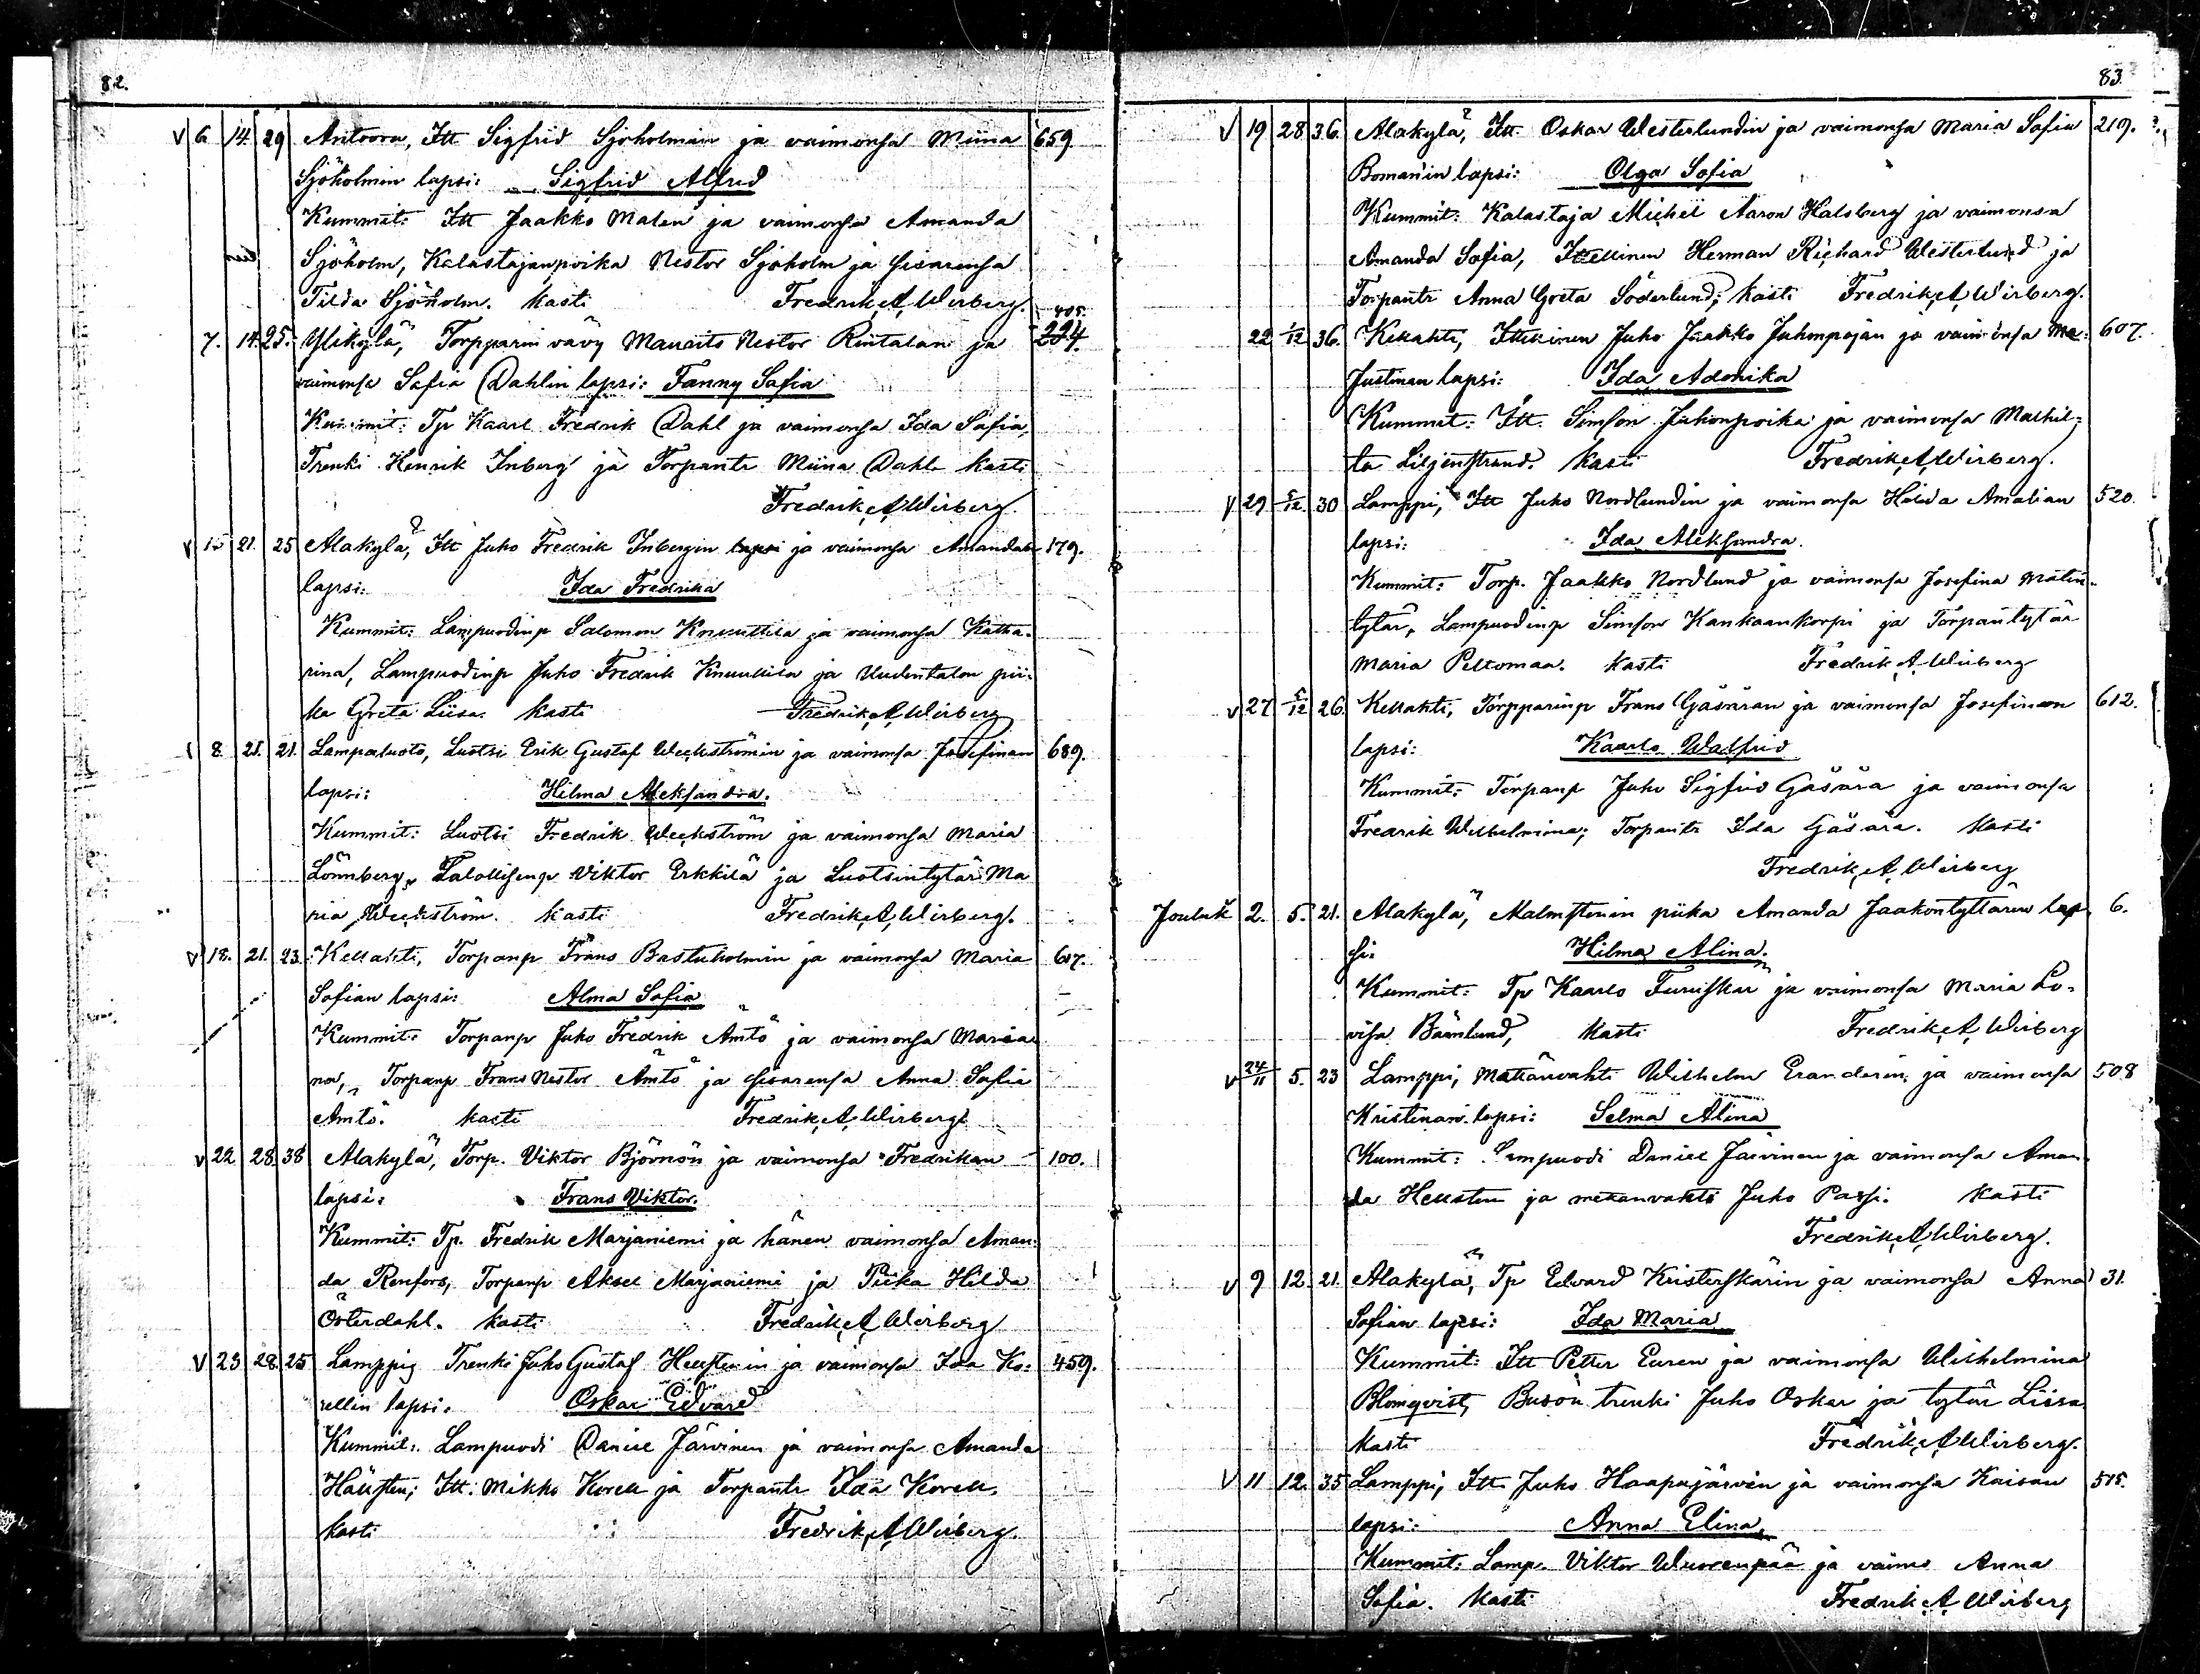 82.
V 6 14 29 Antoora, Itt Sigfrid Sjöholmin ja vaimonsa Miina 659
Sjöholmin lapsi: Sigfrid Alfred
Kummit: Itt Jaakko Malen ja vaimonsa Amanda
Sjöholm, Kalastajanpoika Nestor Sjöholm ja sisarensa
Tilda Sjöholm. Kasti Fredrik A Wirberg.
405.
7. 14. 25. Ylikylä, Torpparin vävy Maurits Nestor Rintalan ja 224.
vaimonsa Sofia Dahlin lapsi: Fanny Sofia
Kummit: Tp Kaarl Fredrik Dahl ja vaimonsa Ida Sofia,
Trenki Henrik Inberg ja Torpantr Miina Dahl. Kasti
Fredrik A Wirberg.
V 15 21. 25 Alakylä, Itt Juho Fredrik Inbergin lapsi ja vaimonsa Amandan 179.
lapsi: Ida Fredrika
Kummit: Lampuodinp Salomon Knuuttila ja vaimonsa Katha-
rina, Lampuodinp Juho Fredrik Knuuttila ja Uudentalon pii-
ka Greta Liisa. Kasti Fredrik A Wirberg
8. 21. 21. Lampaluoto, Luotsi Erik Gustaf Weckströmin ja vaimonsa Josefinan 689.
lapsi: Hilma Aleksandra.
Kummit: Luotsi Fredrik Weckström ja vaimonsa Maria
Lönnberg, Talollisenp Viktor Erkkilä ja Luotsintytär Ma
ria Weckström. Kasti Fredrik A Wirberg.
V 18. 21. 23. Kellahti, Torpanp Frans Bastuholmin ja vaimonsa Maria 617.
Sofian lapsi: Alma Sofia
Kummit: Torpanp Juho Fredrik Ämtö ja vaimonsa Maria
na, Torpanp Frans Nestor Ämtö ja sisarensa Anna Sofia
Ämtö. Kasti Fredrik A Wirberg
V 22 28. 38 Alakylä, Torp. Viktor Björnön ja vaimonsa Fredrikan 100.
lapsi: Frans Viktor.
Kummit: Tp. Fredrik Marjaniemi ja hänen vaimonsa Aman-
da Renfors, Torpanp Aksel Marjaniemi ja Piika Hilda
Österdahl. Kasti Fredrik A Wirberg
V 23 28. 25 Lamppi, Trenki Juho Gustaf Hellstenin ja vaimonsa Ida Ko- 459.
rellin lapsi. Oskar Edvard
Kummit: Lampuodi Daniel Järvinen ja vaimonsa Amanda
Hällsten; Itt. Mikko Korell ja Torpantr Ida Korell.
Kasti Fredrik A Wirberg.
83.
V 19 28 36. Alakylä, Itt. Oskar Westerlundin ja vaimonsa Maria Sofia 219.
Bomanin lapsi: Olga Sofia
Kummit: Kalastaja Michel Aaron Halsberg ja vaimonsa
Amanda Sofia, Itsellinen Herman Richard Westerlund ja
Torpantr Anna Greta Söderlund; Kasti Fredrik A Wirberg.
22 1/12 36. Kellahti, Ittellinen Juho Jaakko Juhonpojan ja vaimonsa Ma- 607.
Justinan lapsi: Ida Adonika
Kummit: Itt. Simson Juhonpoika ja vaimonsa Mathil-
ta Liljenstrand. Kasti Fredrik A Wirberg.
V 29 5/12. 30 Lamppi, Itt Juho Nordlundin ja vaimonsa Hilda Amalian 520.
lapsi: Ida Aleksandra.
Kummit: Torp. Jaakko Nordlund ja vaimonsa Josefina Matin-
tytär, Lampuodinp Simson Kankaankorpi ja Torpantytär
Maria Peltomaa. Kasti Fredrik A Wirberg
V 27 5/12 26. Kellahti, Torpparinp Frans Gäsäran ja vaimonsa Josefinan 612.
lapsi: Kaarlo Walfrid
Kummit: Torpanp Juho Sigfrid Gäsära ja vaimonsa
Fredrik Wilhelmina; Torpantr Ida Gäsära. Kasti
Fredrik A Wirberg
Jouluk 2. 5. 21. Alakylä, Malmstenin piika Amanda Jaakontyttären lap- 6.
si: Hilma Alina.
Kummit: Tp Kaarlo Furuskär ja vaimonsa Maria Lo-
visa Bäänlund, Kasti Fredrik A Wirberg
V 24/11 5. 23 Lamppi, Metsänvahti Wilhelm Eranderin ja vaimonsa 508
Kristinan lapsi: Selma Alina
Kummit: Lampuodi Daniel Järvinen ja vaimonsa Aman-
da Hellsten ja metsänvahti Juho Passi. Kasti
Fredrik A Wirberg.
V 9 12. 21. Alakylä, Tp Edvard Kristerskärin ja vaimonsa Anna 31.
Sofian lapsi: Ida Maria
Kummit: Itt Petter Euren ja vaimonsa Wilhelmina
Blomqvist, Busön trenki Juho Oskar ja tytär Liisa
Kasti Fredrik A Wirberg.
V 11 12. 35 Lamppi, Itt Juho Haapajärvin ja vaimonsa Kaisan 515.
lapsi: Anna Elina.
Kummit: Lamp. Viktor Wuorenpää ja vaimo Anna
Sofia. Kasti Fredrik A Wirberg